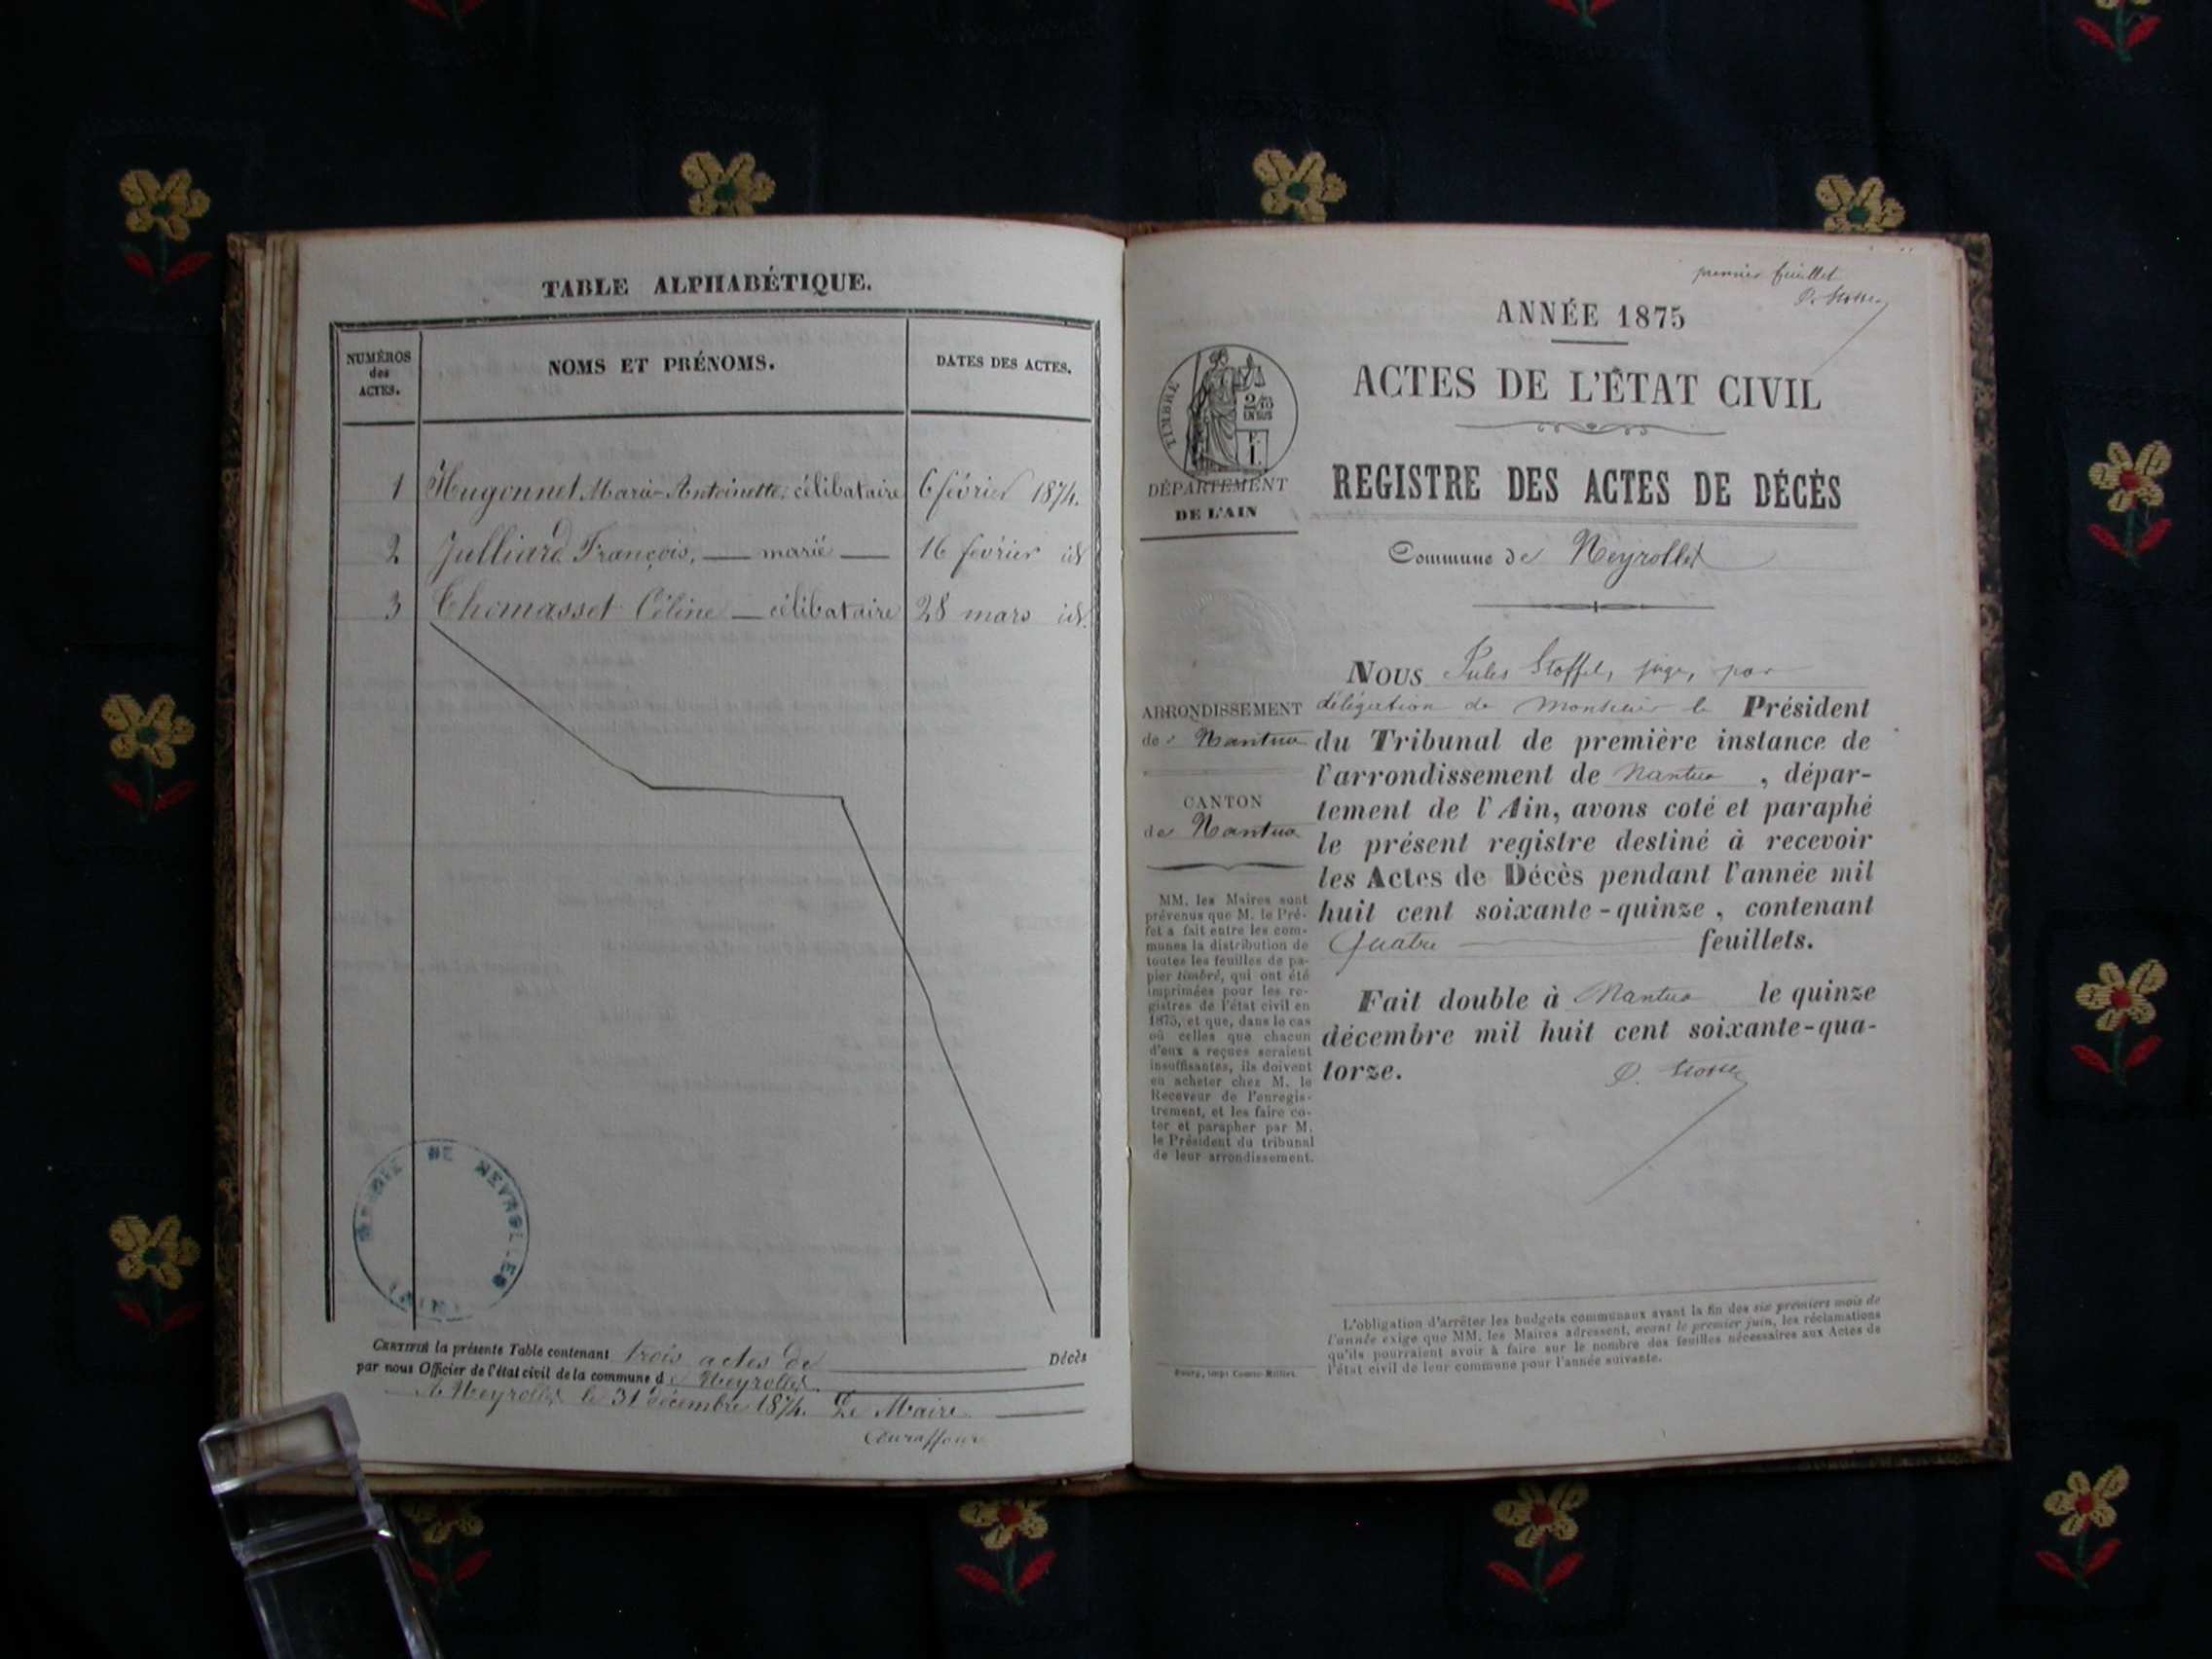 TABLE ALPHABÉTIQUE.
NUMÉROS
des
ACTES.
NOMS ET PRÉNOMS.
DATES DES ACTES.
1 Hugonnet Marie-Antoinette, célibataire 6 février 1874.
2 Julliard François, — marié — 16 février id
3 Thomasset Céline — célibataire 28 mars id.
MAIRIE DE NEYROLLES
(AIN)
CERTIFIÉ la présente Table contenant trois actes de Décès
par nous Officier de l'état civil de la commune d Neyrolles.
A Neyrolles le 31 décembre 1874. Le Maire
premier feuillet
ANNÉE 1875
ACTES DE L'ÉTAT CIVIL
TIMBRE
2/10
EN SUS
DÉPARTEMENT
DE L'AIN
REGISTRE DES ACTES DE DÉCÈS
Commune de Neyrolles
NOUS Jules Stoffel, juge, par
délégation de Monsieur le Président
du Tribunal de première instance de
l'arrondissement de Nantua, dépar-
tement de l'Ain, avons coté et paraphé
le présent registre destiné à recevoir
les Actes de Décès pendant l'année mil
huit cent soixante-quinze, contenant
Quatre feuillets.
Fait double à Nantua le quinze
décembre mil huit cent soixante-qua-
torze.
ARRONDISSEMENT
de Nantua
CANTON
de Nantua
MM. les Maires sont
prévenus que M. le Pré-
fet a fait entre les com-
munes la distribution de
toutes les feuilles de pa-
pier timbré, qui ont été
imprimées pour les re-
gistres de l'état civil en
1875, et que, dans le cas
où celles que chacun
d'eux a reçues seraient
insuffisantes, ils doivent
en acheter chez M. le
Receveur de l'enregis-
trement, et les faire co-
ter et parapher par M.
le Président du tribunal
de leur arrondissement.
L'obligation d'arrêter les budgets communaux avant la fin des six premiers mois de
l'année exige que MM. les Maires adressent, avant le premier juin, les réclamations
qu'ils pourraient avoir à faire sur le nombre des feuilles nécessaires aux Actes de
l'état civil de leur commune pour l'année suivante.
Bourg, imp. Comte-Milliet.